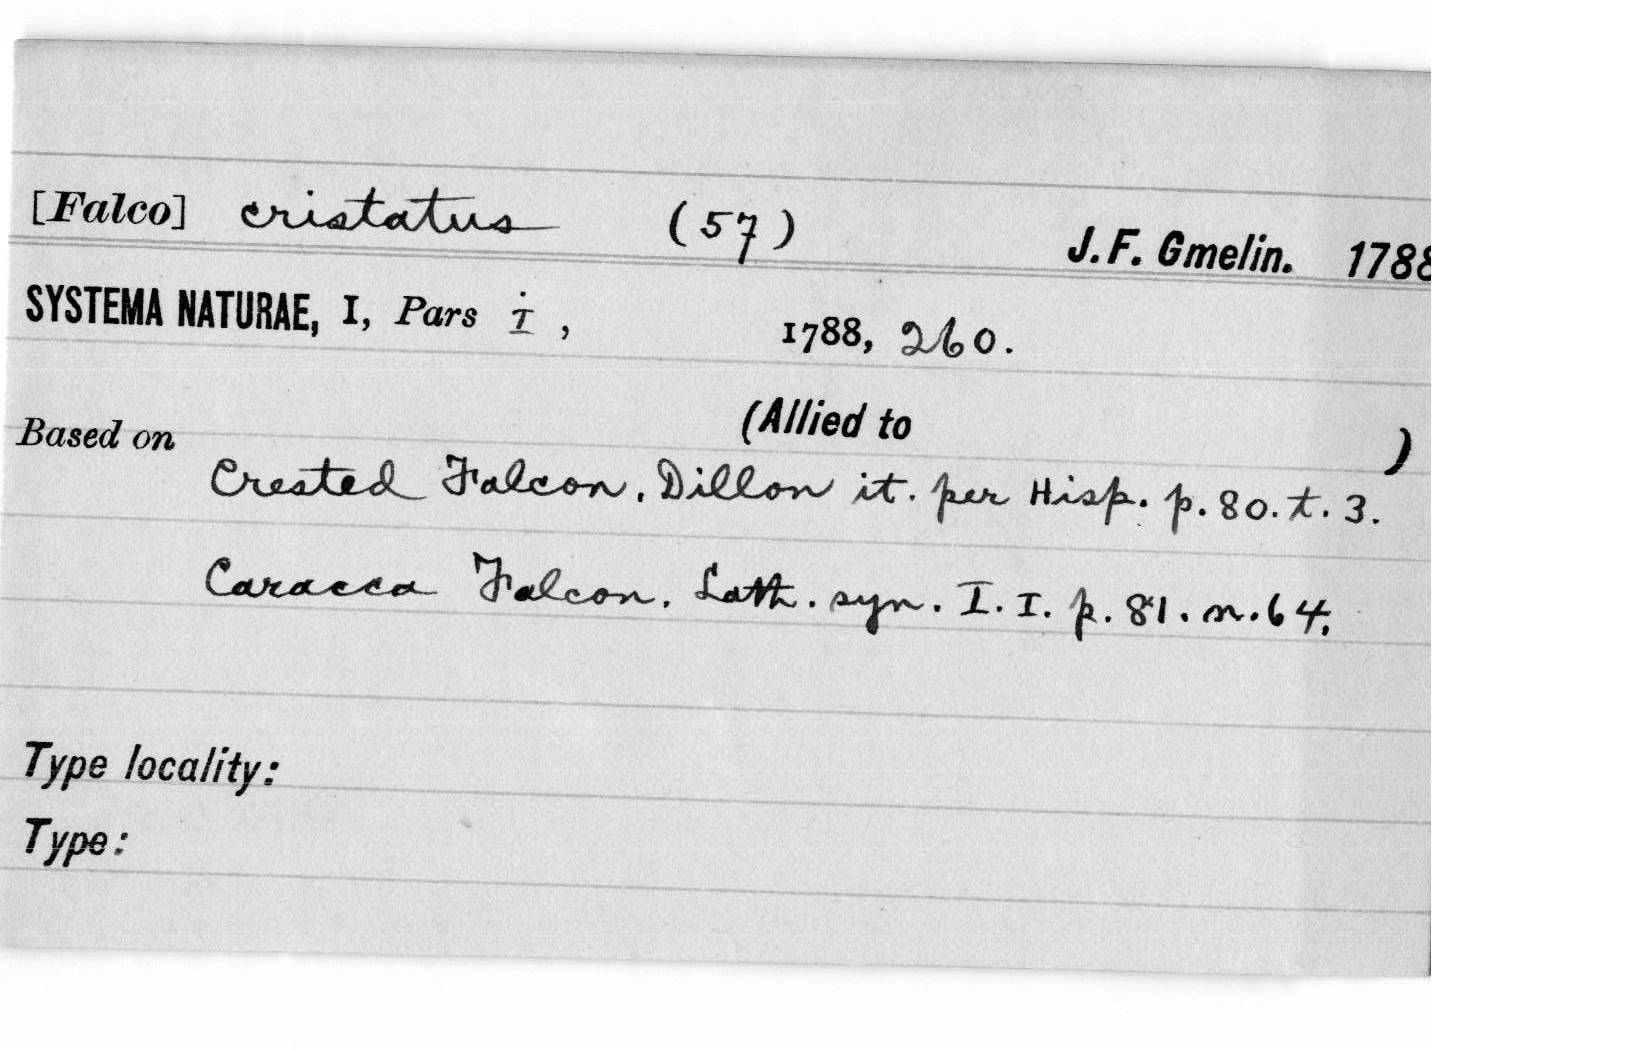 [Falco] cristatus (57) J. F. Gmelin. 1788
SYSTEMA NATURAE, I, Pars i, 1788, 260.
(Allied to )
Based on
Crested Falcon. Dillon it. per Hisp. p. 80. t. 3.
Caracca Falcon. Lath. syn. I. I. p. 81. n. 64.
Type locality:
Type: